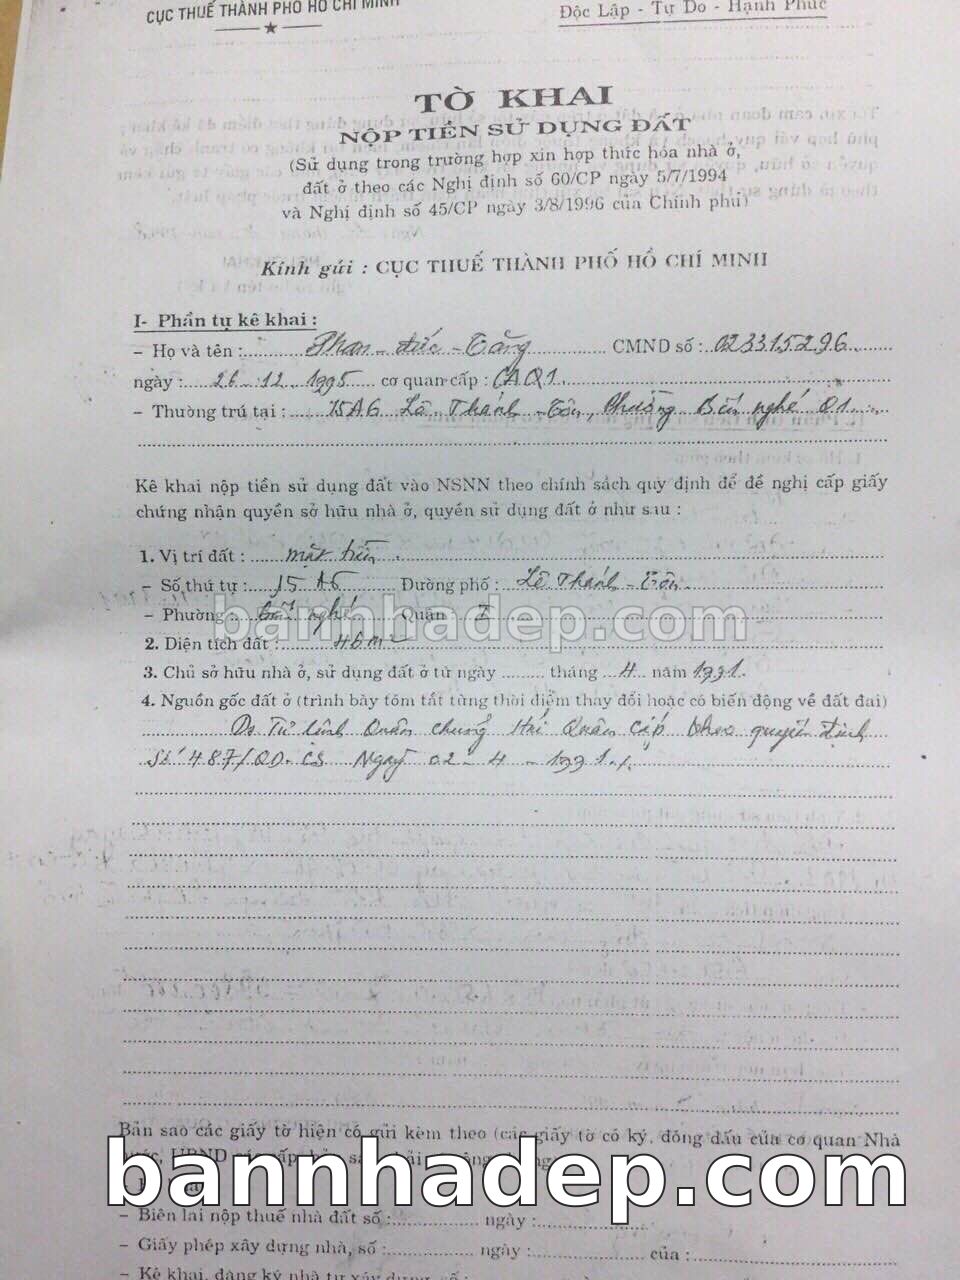 CỤC THUẾ THÀNH PHỐ HỒ CHÍ MINH
Độc Lập - Tự Do - Hạnh Phúc
TỜ KHAI
NỘP TIỀN SỬ DỤNG ĐẤT
(Sử dụng trong trường hợp xin hợp thức hóa nhà ở,
đất ở theo các Nghị định số 60/CP ngày 5/7/1994
và Nghị định số 45/CP ngày 3/8/1996 của Chính phủ)
Kính gửi : CỤC THUẾ THÀNH PHỐ HỒ CHÍ MINH
I- Phần tự kê khai :
- Họ và tên : Phan - Đức - Tăng CMND số : 023315296
ngày : 26 - 12 - 1995 cơ quan cấp : CAQ1
- Thường trú tại : 15A6 Lê - Thánh - Tôn, Phường Bến nghé Q1
Kê khai nộp tiền sử dụng đất vào NSNN theo chính sách quy định để đề nghị cấp giấy
chứng nhận quyền sở hữu nhà ở, quyền sử dụng đất ở như sau :
1. Vị trí đất : mặt tiền
- Số thứ tự : 15 A6 Đường phố : Lê Thánh - Tôn
- Phường : Bến nghé Quận I
bannhadep.com
2. Diện tích đất : 46m²
3. Chủ sở hữu nhà ở, sử dụng đất ở từ ngày ......... tháng 4 năm 1991.
4. Nguồn gốc đất ở (trình bày tóm tắt từng thời điểm thay đổi hoặc có biến động về đất đai)
Do Tư lệnh Quân chủng Hải Quân Cấp theo quyết định
Số 487/QD-CS Ngày 02 - 4 - 1991
Bản sao các giấy tờ hiện có gửi kèm theo (các giấy tờ có ký, đóng dấu của cơ quan Nhà
bannhadep.com
- Biên lai nộp thuế nhà đất số : ngày :
- Giấy phép xây dựng nhà, số : ngày : của :
- Kê khai, đăng ký nhà tự xây dựng số :